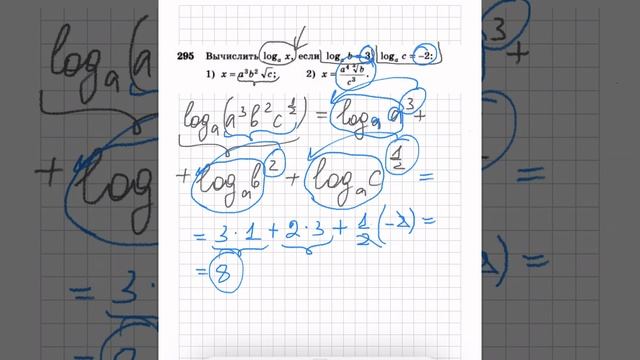 295 Вычислить logₐ x, если logₐ b = 3, logₐ c = -2:
1) x = a³b²√c; 2) x = a⁴∛b / c³.
logₐ(a³b²c^½) = logₐ a³ +
+ logₐ b² + logₐ c^½ =
= 3·1 + 2·3 + ½(-2) =
= 8